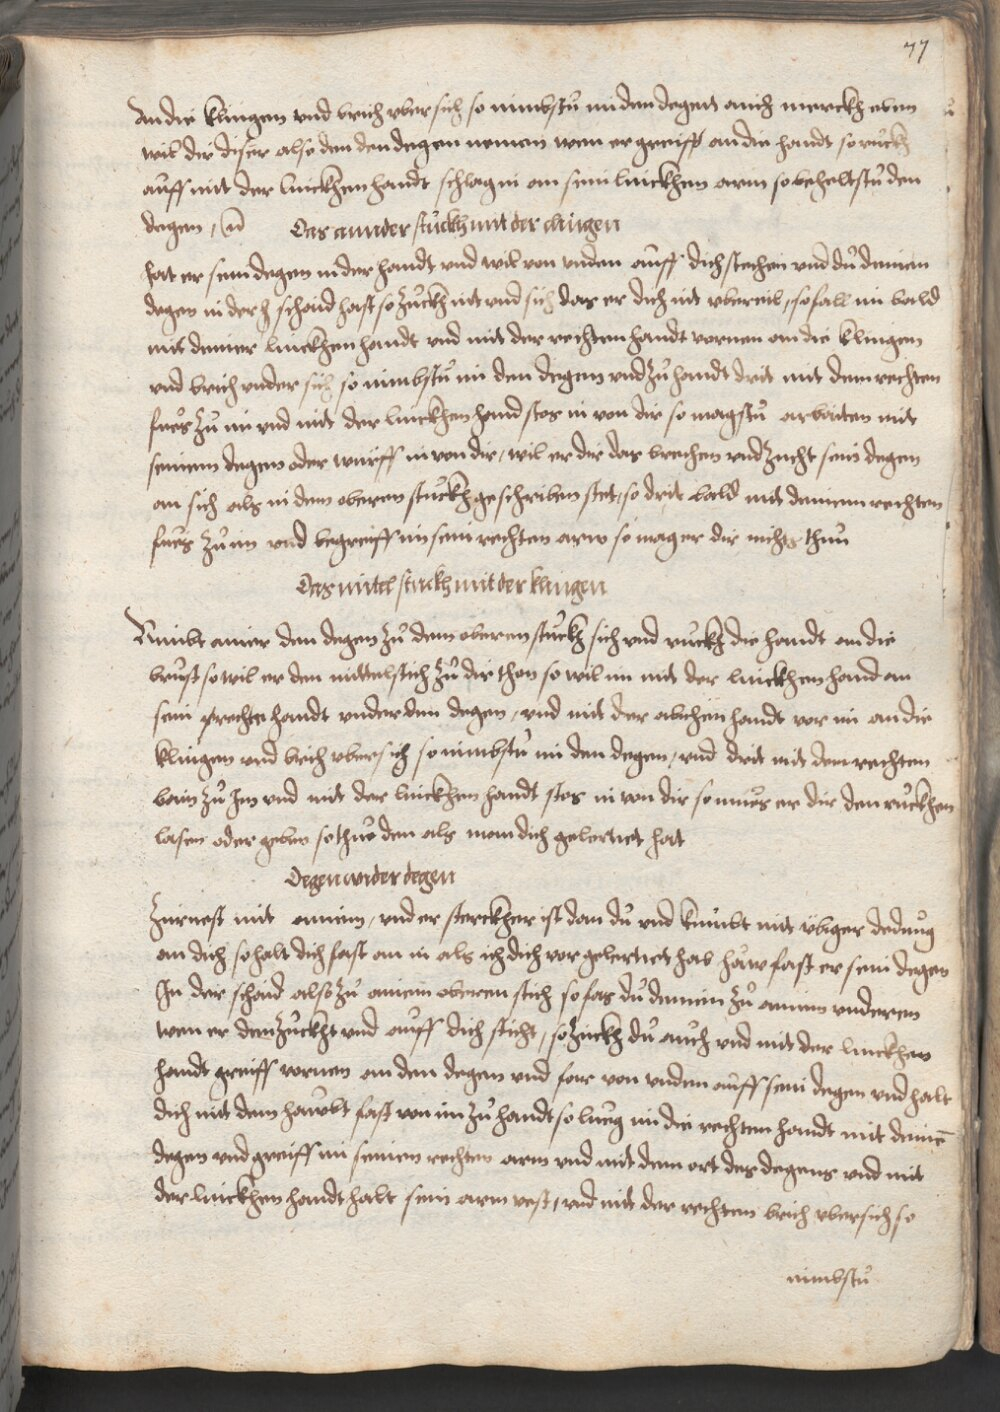 77
An die klingen vnd brich vbersich so nimbstu im den degen auch merckh eben
wil dir diser also den den degen nemen wen er greifft an die handt so ruckh
auff mit der linckhen handt schlag in an sein linckhen arm so beheltstu den
degen,
Das annder stuckh mit der clingen
hat er sein degen in der handt vnd wil von vnden auff dich stechen vnd du deinen
degen in der schaid hast so zuckh nit vnd sich das er dich nit vbereil, so fall im bald
mit deiner linckhen handt vnd mit der rechten handt vornen an die klingen
vnd brich vnder sich so nimbstu im den degen vnd zu handt drit mit dem rechten
fues zu im vnd mit der linckhen hand stos in von dir so magstu arbaiten mit
seinem degen oder würff in von dir, wil er dir das brechen vnd zucht sein degen
an sich als in dem oberen stuckh geschriben stet, so drit bald mit deinem rechten
fues zu im vnd begreiff im sein rechten arm so mag er dir nichts thun
Das mitel stuckh mit der klingen
Nimbt ainer den degen zu dem oberen stuckh sich vnd ruckh die handt an die
brust so wil er den mittelstich zu dir thon so wil im mit der linckhen hand an
sein rechte handt vnder den degen, vnd mit der abichen handt vor im an die
klingen vnd brich vbersich so nimbstu im den degen, vnd drit mit dem rechten
bain zu Im vnd mit der linckhen handt stos in von dir so mues er dir den ruckhen
lasen oder geben so thue dem als man dich gelernet hat
Degen wider degen
Zürnest mit ainem, vnd er sterckher ist dan du vnd kumbt mit übiger dedung
an dich so halt dich fast an in als ich dich vor gelernet hab fast er sein degen
In der schaid also zu ainem oberen stich so fas du deinen zu ainem vnderen
wen er den zuckht vnd auff dich sticht, so zuckh du auch vnd mit der linckhen
handt greiff vornen an den degen vnd far von vnden auff sein degen vnd halt
dich mit dem haubt fast von im zu handt so lueg im die rechten handt mit deinē
degen vnd greiff im seinen rechten arm vnd mit dem ort des degens vnd mit
der linckhen handt halt sein arm vest, vnd mit der rechten brich vbersich so
nimbstu